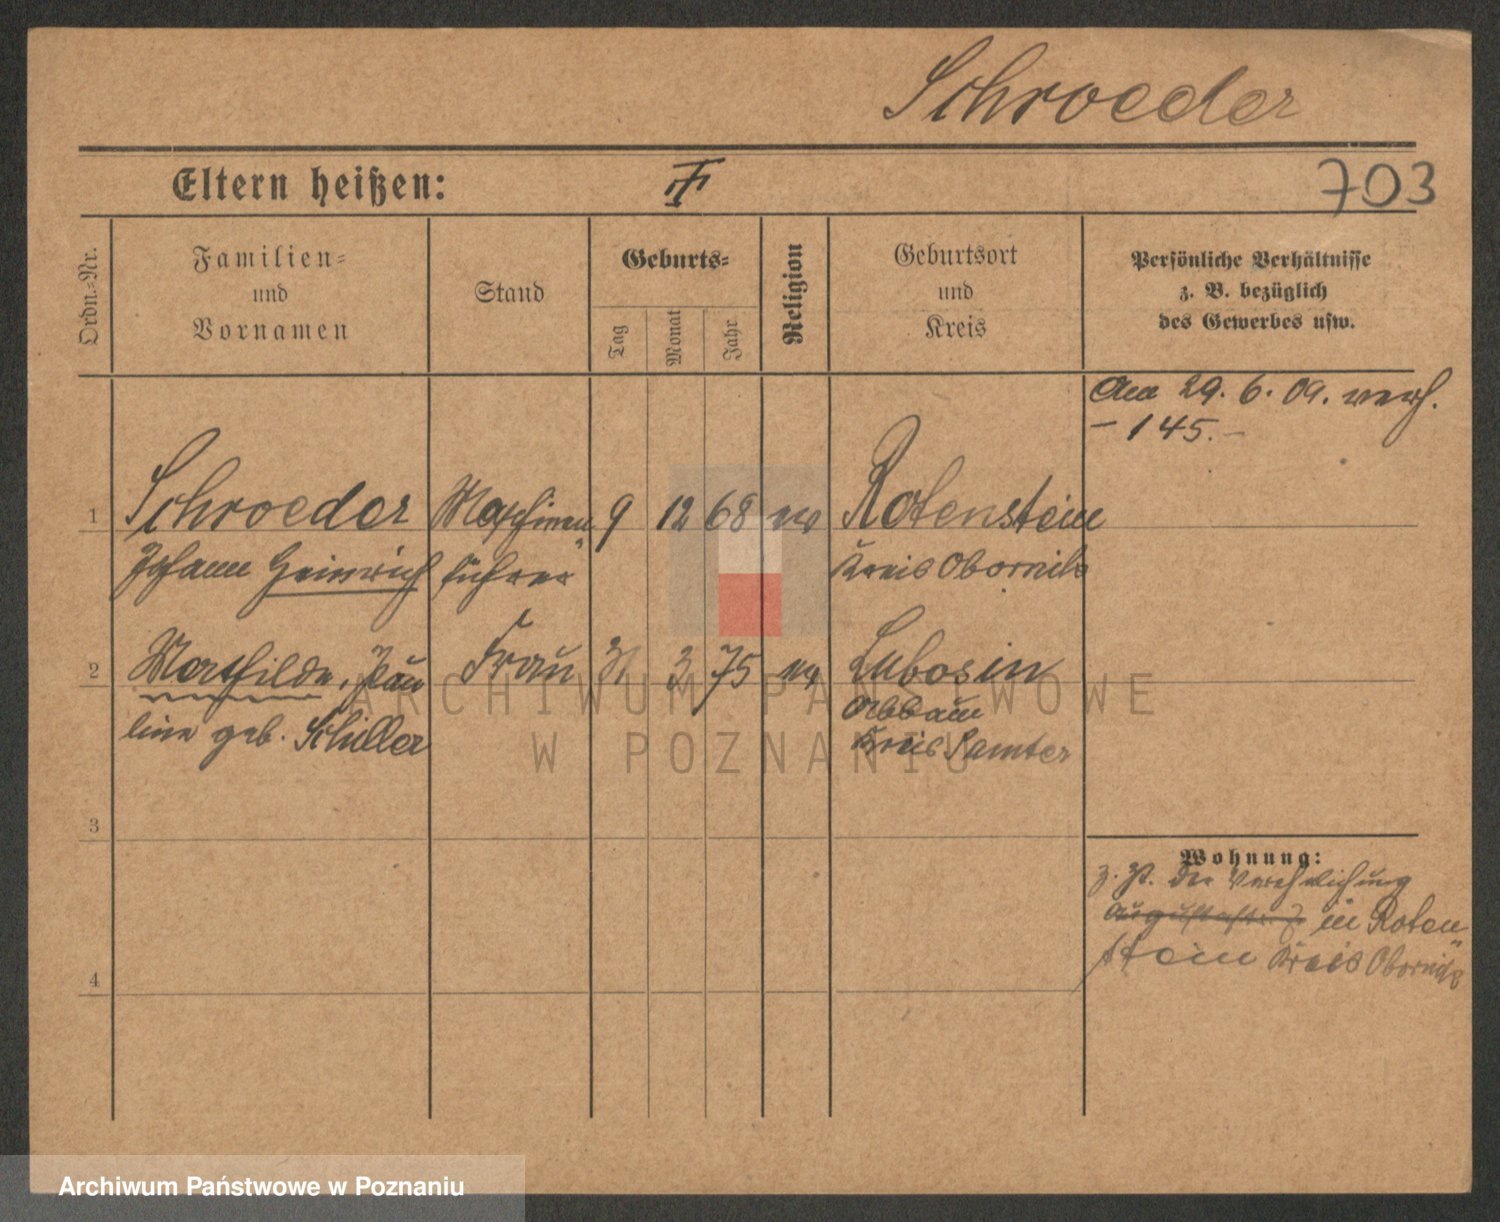 Schroeder
Eltern heißen: F 703
Ordn.-Nr.
Familien-
und
Vornamen
Stand
Geburts-
Tag
Monat
Jahr
Religion
Geburtsort
und
Kreis
Persönliche Verhältnisse
z. B. bezüglich
des Gewerbes usw.
Am 29. 6. 09. verh.
- 145. -
1 Schroeder Maschinen 9 12 68 ev Rotenstein
Johann Heinrich führer Kreis Obornik
2 Mathilde, Pau Frau 3 75 ev Lubosin
line geb. Schiller Abbau
Kreis Samter
3
4
Wohnung:
z. Zt. der Verehelichung
in Roten
stein Kreis Obornik
ARCHIWUM PAŃSTWOWE
W POZNANIU
Archiwum Państwowe w Poznaniu